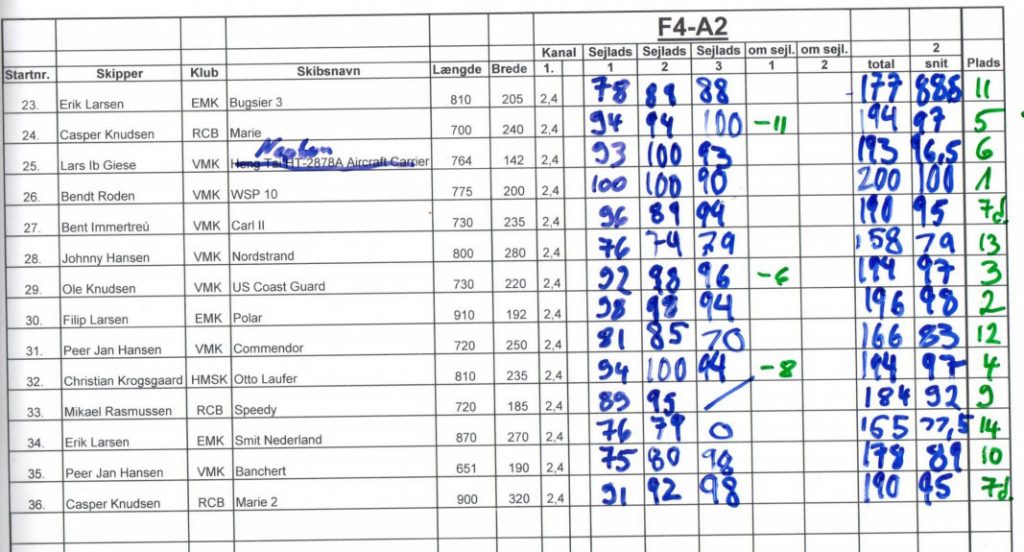 F4-A2
Kanal Sejlads Sejlads Sejlads om sejl. om sejl. 2
Startnr. Skipper Klub Skibsnavn Længde Brede 1. 1 2 3 1 2 total snit Plads
23. Erik Larsen EMK Bugsier 3 810 205 2,4 78 89 88 177 88,5 11
24. Casper Knudsen RCB Marie 700 240 2,4 94 94 100 -11 194 97 5
25. Lars Ib Giese VMK Heng Tai HT-2878A Aircraft Carrier 764 142 2,4 93 100 93 193 96,5 6
26. Bendt Roden VMK WSP 10 775 200 2,4 100 100 90 200 100 1
27. Bent Immertreú VMK Carl II 730 235 2,4 96 89 94 190 95 7d.
28. Johnny Hansen VMK Nordstrand 800 280 2,4 76 74 79 158 79 13
29. Ole Knudsen VMK US Coast Guard 730 220 2,4 92 98 96 -6 194 97 3
30. Filip Larsen EMK Polar 910 192 2,4 98 98 94 196 98 2
31. Peer Jan Hansen VMK Commendor 720 250 2,4 81 85 70 166 83 12
32. Christian Krogsgaard HMSK Otto Laufer 810 235 2,4 94 100 94 -8 194 97 4
33. Mikael Rasmussen RCB Speedy 720 185 2,4 89 95 184 92 9
34. Erik Larsen EMK Smit Nederland 870 270 2,4 76 79 0 155 77,5 14
35. Peer Jan Hansen VMK Banchert 651 190 2,4 75 80 98 178 89 10
36. Casper Knudsen RCB Marie 2 900 320 2,4 91 92 98 190 95 7d.